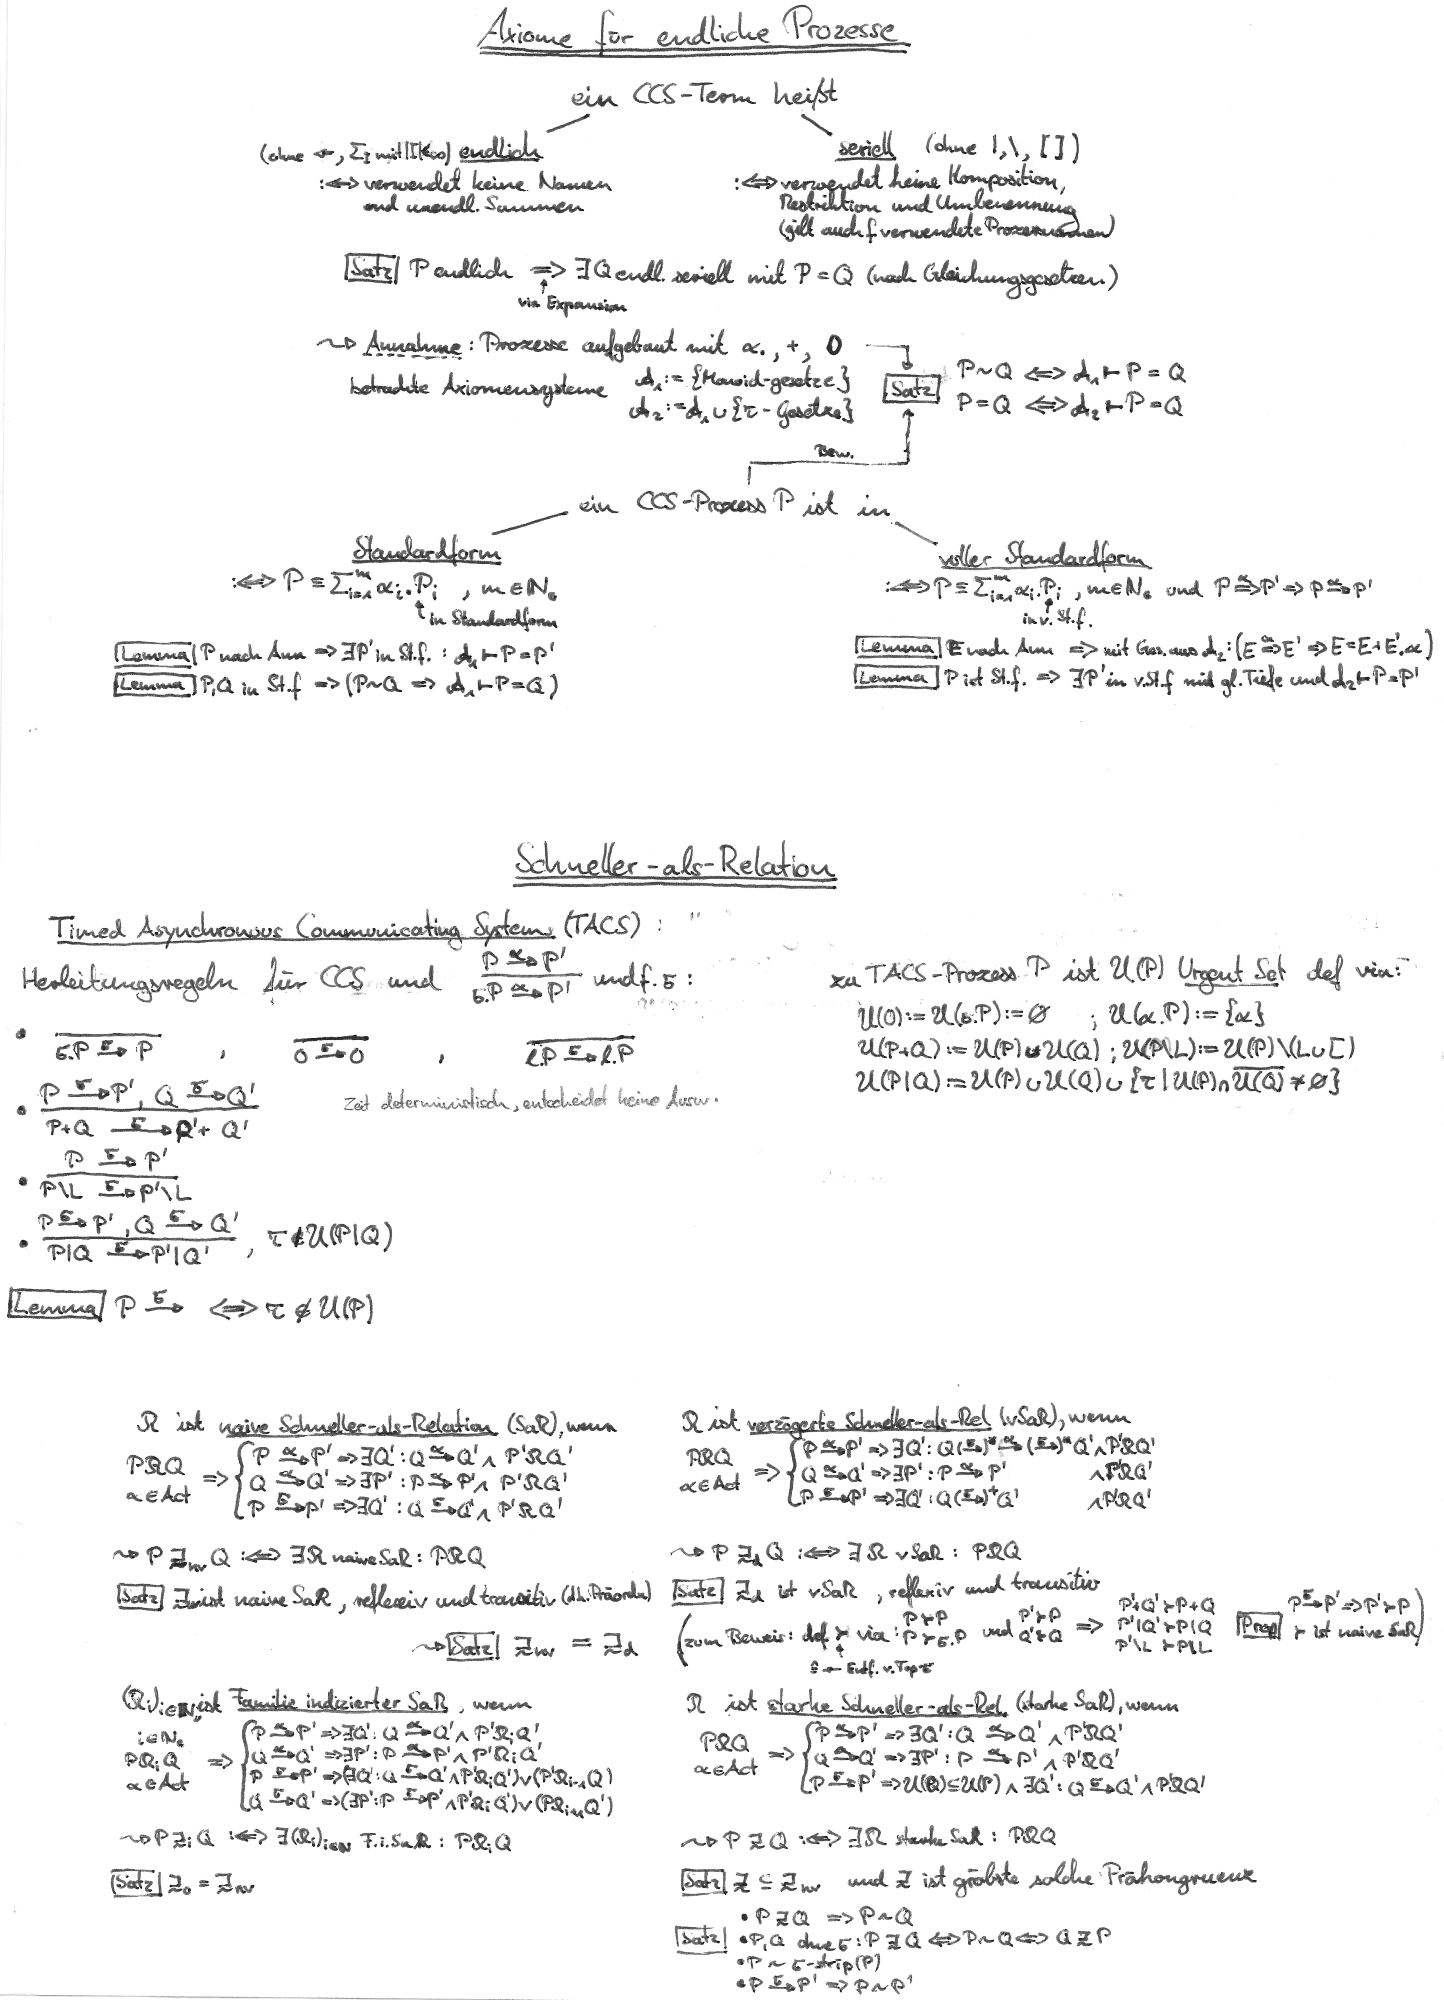 Axiome für endliche Prozesse
ein CCS-Term heißt
(ohne ←, Σ_I mit |I|<∞) endlich
:⇔ verwendet keine Namen
und unendl. Summen
seriell (ohne |, \, [ ])
:⇔ verwendet keine Komposition,
Restriktion und Umbenennung
(gilt auch f. verwendete Prozessnamen)
Satz P endlich ⇒ ∃Q endl. seriell mit P = Q (nach Gleichungsgesetzen)
via Expansion
⤳ Annahme: Prozesse aufgebaut mit α. , + , 0
betrachte Axiomensysteme A₁ := {Monoid-gesetze}
A₂ := A₁ ∪ {τ-Gesetze}
Satz P~Q ⇔ A₁ ⊢ P = Q
P=Q ⇔ A₂ ⊢ P=Q
Bew.
ein CCS-Prozess P ist in
Standardform
:⇔ P ≡ Σᵢ₌₁ᵐ αᵢ.Pᵢ , m∈ℕ₀
in Standardform
Lemma P nach Ann ⇒ ∃P' in St.f. : A₁ ⊢ P = P'
Lemma P,Q in St.f ⇒ (P~Q ⇒ A₁ ⊢ P=Q)
voller Standardform
:⇔ P ≡ Σᵢ₌₁ᵐ αᵢ.Pᵢ , m∈ℕ₀ und P =α⇒ P' ⇒ P -α→ P'
in v. St.f.
Lemma E nach Ann ⇒ mit Ges. aus A₂ : (E =α⇒ E' ⇒ E=E+E'.α)
Lemma P ist St.f. ⇒ ∃P' in v.St.f mit gl. Tiefe und A₂ ⊢ P=P'
Schneller-als-Relation
Timed Asynchronous Communicating Systems (TACS) :
Herleitungsregeln für CCS und P -α→ P' / σ.P -α→ P' und f. σ :
• σ.P -σ→ P , 0 -σ→ 0 , l.P -σ→ l.P
• P -σ→ P', Q -σ→ Q' / P+Q -σ→ P'+ Q'
Zeit deterministisch, entscheidet keine Ausw.
• P -σ→ P' / P\L -σ→ P'\L
• P -σ→ P', Q -σ→ Q' / P|Q -σ→ P'|Q' , τ∉U(P|Q)
Lemma P -σ→ ⇔ τ ∉ U(P)
zu TACS-Prozess P ist U(P) Urgent Set def via:
U(0) := U(σ.P) := ∅ ; U(α.P) := {α}
U(P+Q) := U(P) ∪ U(Q) ; U(P\L) := U(P)\(L∪L̄)
U(P|Q) := U(P) ∪ U(Q) ∪ {τ | U(P)∩U(Q)‾ ≠ ∅}
R ist naive Schneller-als-Relation (SaR), wenn
PRQ
α∈Act
⇒ { P -α→ P' ⇒ ∃Q' : Q -α→ Q' ∧ P'RQ'
Q -α→ Q' ⇒ ∃P' : P -α→ P' ∧ P'RQ'
P -σ→ P' ⇒ ∃Q' : Q -σ→ Q' ∧ P'RQ'
⤳ P ⊒ₙᵥ Q :⇔ ∃R naive SaR : PRQ
Satz ⊒ₙᵥ ist naive SaR, reflexiv und transitiv (d.h. Präorder)
⤳ Satz ⊒ₙᵥ = ⊒_d
R ist verzögerte Schneller-als-Rel (vSaR), wenn
PRQ
α∈Act
⇒ { P -α→ P' ⇒ ∃Q' : Q (-σ→)* -α→ (-σ→)* Q' ∧ P'RQ'
Q -α→ Q' ⇒ ∃P' : P -α→ P' ∧ P'RQ'
P -σ→ P' ⇒ ∃Q' : Q (-σ→)⁺ Q' ∧ P'RQ'
⤳ P ⊒_d Q :⇔ ∃R vSaR : PRQ
Satz ⊒_d ist vSaR , reflexiv und transitiv
(zum Beweis: def ≻ via : P≻P P≻σ.P und P'≻P Q'≻Q ⇒ P'+Q'≻P+Q P'|Q'≻P|Q P'\L ≻P\L
Prop P -σ→ P' ⇒ P'≻P ≻ ist naive SaR)
≙ Entf. v. Top-σ
(Rᵢ)ᵢ∈ℕ₀ ist Familie indizierter SaR , wenn
i∈ℕ₀
PRᵢQ
α∈Act
⇒ { P -α→ P' ⇒ ∃Q' : Q -α→ Q' ∧ P'RᵢQ'
Q -α→ Q' ⇒ ∃P' : P -α→ P' ∧ P'RᵢQ'
P -σ→ P' ⇒ (∃Q' : Q -σ→ Q' ∧ P'RᵢQ') ∨ (P'Rᵢ₋₁Q)
Q -σ→ Q' ⇒ (∃P' : P -σ→ P' ∧ P'RᵢQ') ∨ (PRᵢ₊₁Q')
⤳ P ⊒ᵢ Q :⇔ ∃(Rᵢ)ᵢ∈ℕ F.i.SaR : PRᵢQ
Satz ⊒₀ = ⊒ₙᵥ
R ist starke Schneller-als-Rel. (starke SaR), wenn
PRQ
α∈Act
⇒ { P -α→ P' ⇒ ∃Q' : Q -α→ Q' ∧ P'RQ'
Q -α→ Q' ⇒ ∃P' : P -α→ P' ∧ P'RQ'
P -σ→ P' ⇒ U(Q)⊆U(P) ∧ ∃Q' : Q -σ→ Q' ∧ P'RQ'
⤳ P ⊒ Q :⇔ ∃R starke SaR : PRQ
Satz ⊒ ⊆ ⊒ₙᵥ und ⊒ ist gröbste solche Präkongruenz
Satz • P ⊒ Q ⇒ P~Q
• P,Q ohne σ : P ⊒ Q ⇔ P~Q ⇔ Q ⊒ P
• P ~ σ-strip(P)
• P -σ→ P' ⇒ P~P'